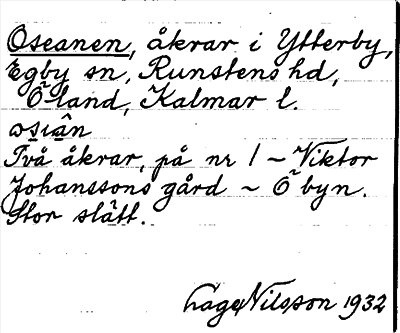 Oseanen, åkrar i Ytterby,
Egby sn, Runstens hd,
Öland, Kalmar l.
osiân
Två åkrar, på nr 1 ~ Viktor
Johanssons gård ~ Ö byn.
Stor slätt.
Lage Nilsson 1932